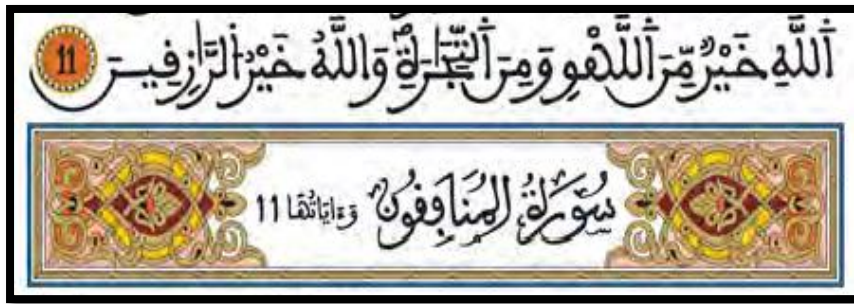 اَ۬للَّهِ خَيْرٌ مِّنَ اَ۬للَّهْوِ وَمِنَ اَ۬لتِّجَٰرَةِۖ وَاللَّهُ خَيْرُ اُ۬لرَّازِقِينَ 11
سُورَةُ المُنَافِقُونَ وَءَايَاتُهَا 11